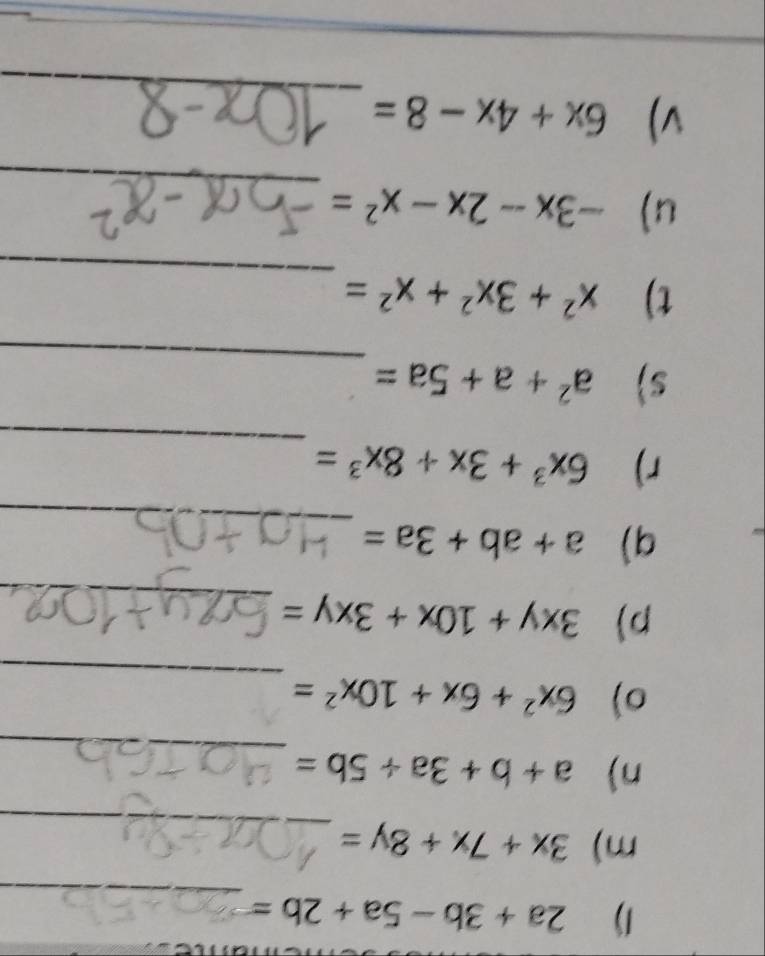 l) 2a + 3b - 5a + 2b = -3a+5b
m) 3x + 7x + 8y = 10x+8y
n) a + b + 3a + 5b = 4a+6b
o) 6x² + 6x + 10x² =
p) 3xy + 10x + 3xy = 6xy+10x
q) a + ab + 3a = 4a+ab
r) 6x³ + 3x + 8x³ =
s) a² + a + 5a =
t) x² + 3x² + x² =
u) -3x - 2x - x² = -5x-x²
v) 6x + 4x - 8 = 10x-8